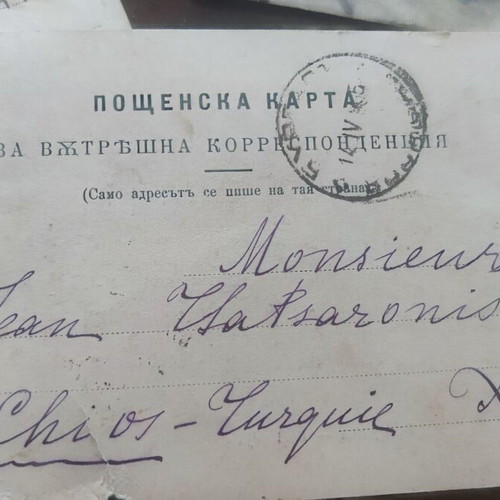 ПОЩЕНСКА КАРТА
ЗА ВѪТРѢШНА КОРРЕСПОНДЕНЦИЯ
(Само адресътъ се пише на тая страна)
Monsieur
Jean Tsatsaronis
Chios - Turquie